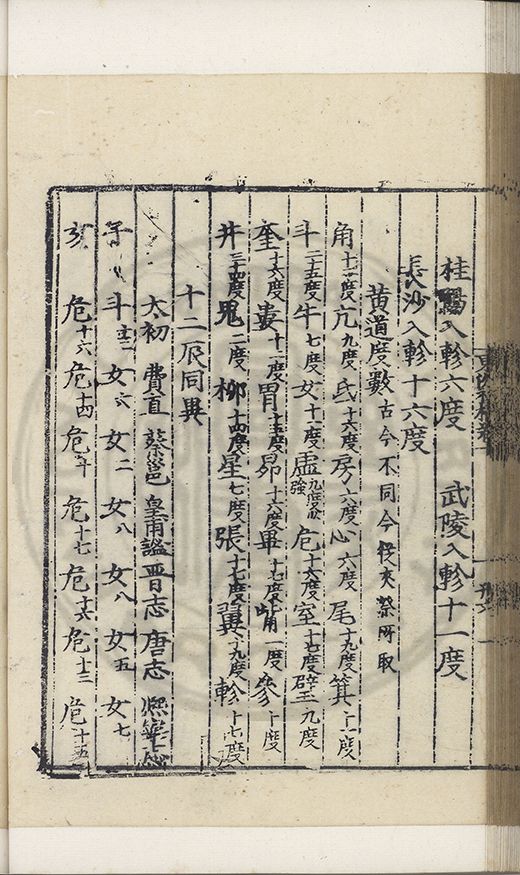 桂陽入軫六度　武陵入軫十一度
長沙入軫十六度
黃道度數 古今不同今 夾漈所取
角十二度亢九度氐十六度房六度心六度尾十九度箕十一度
斗二十五度牛七度女十一度虛九度 強危十六度室十七度壁九度
奎十六度婁十二度胃十五度昴十六度畢十七度觜一度參十度
井三十四度鬼二度柳十四度星七度張十七度翼十九度軫十七度
十二辰同異
太初　費直　蔡邕　皇甫謐　晋志　唐志　熈寧志
子　斗　女六　女二　女八　女八　女五　女七
亥　危十六　危十四　危十　危十七　危十六　危十三　危十五